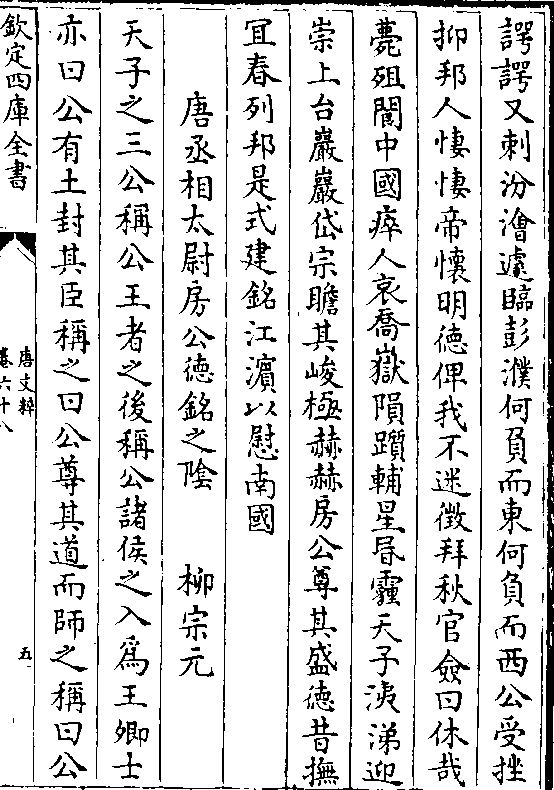 諤諤又刺汾澮遽臨彭濮何負而東何負而西公受挫
抑邦人悽悽帝懷明德俾我不迷徵拜秋官僉曰休哉
薨殂閬中國瘁人哀喬嶽隕躓輔星昏霾天子洟涕迎
崇上台巖巖岱宗瞻其峻極赫赫房公尊其盛德昔撫
宜春列邦是式建銘江濵以慰南國
唐丞相太尉房公德銘之陰 柳宗元
天子之三公稱公王者之後稱公諸侯之入爲王卿士
亦曰公有土封其臣稱之曰公尊其道而師之稱曰公
欽定四庫全書
唐文粹
卷六十八
五